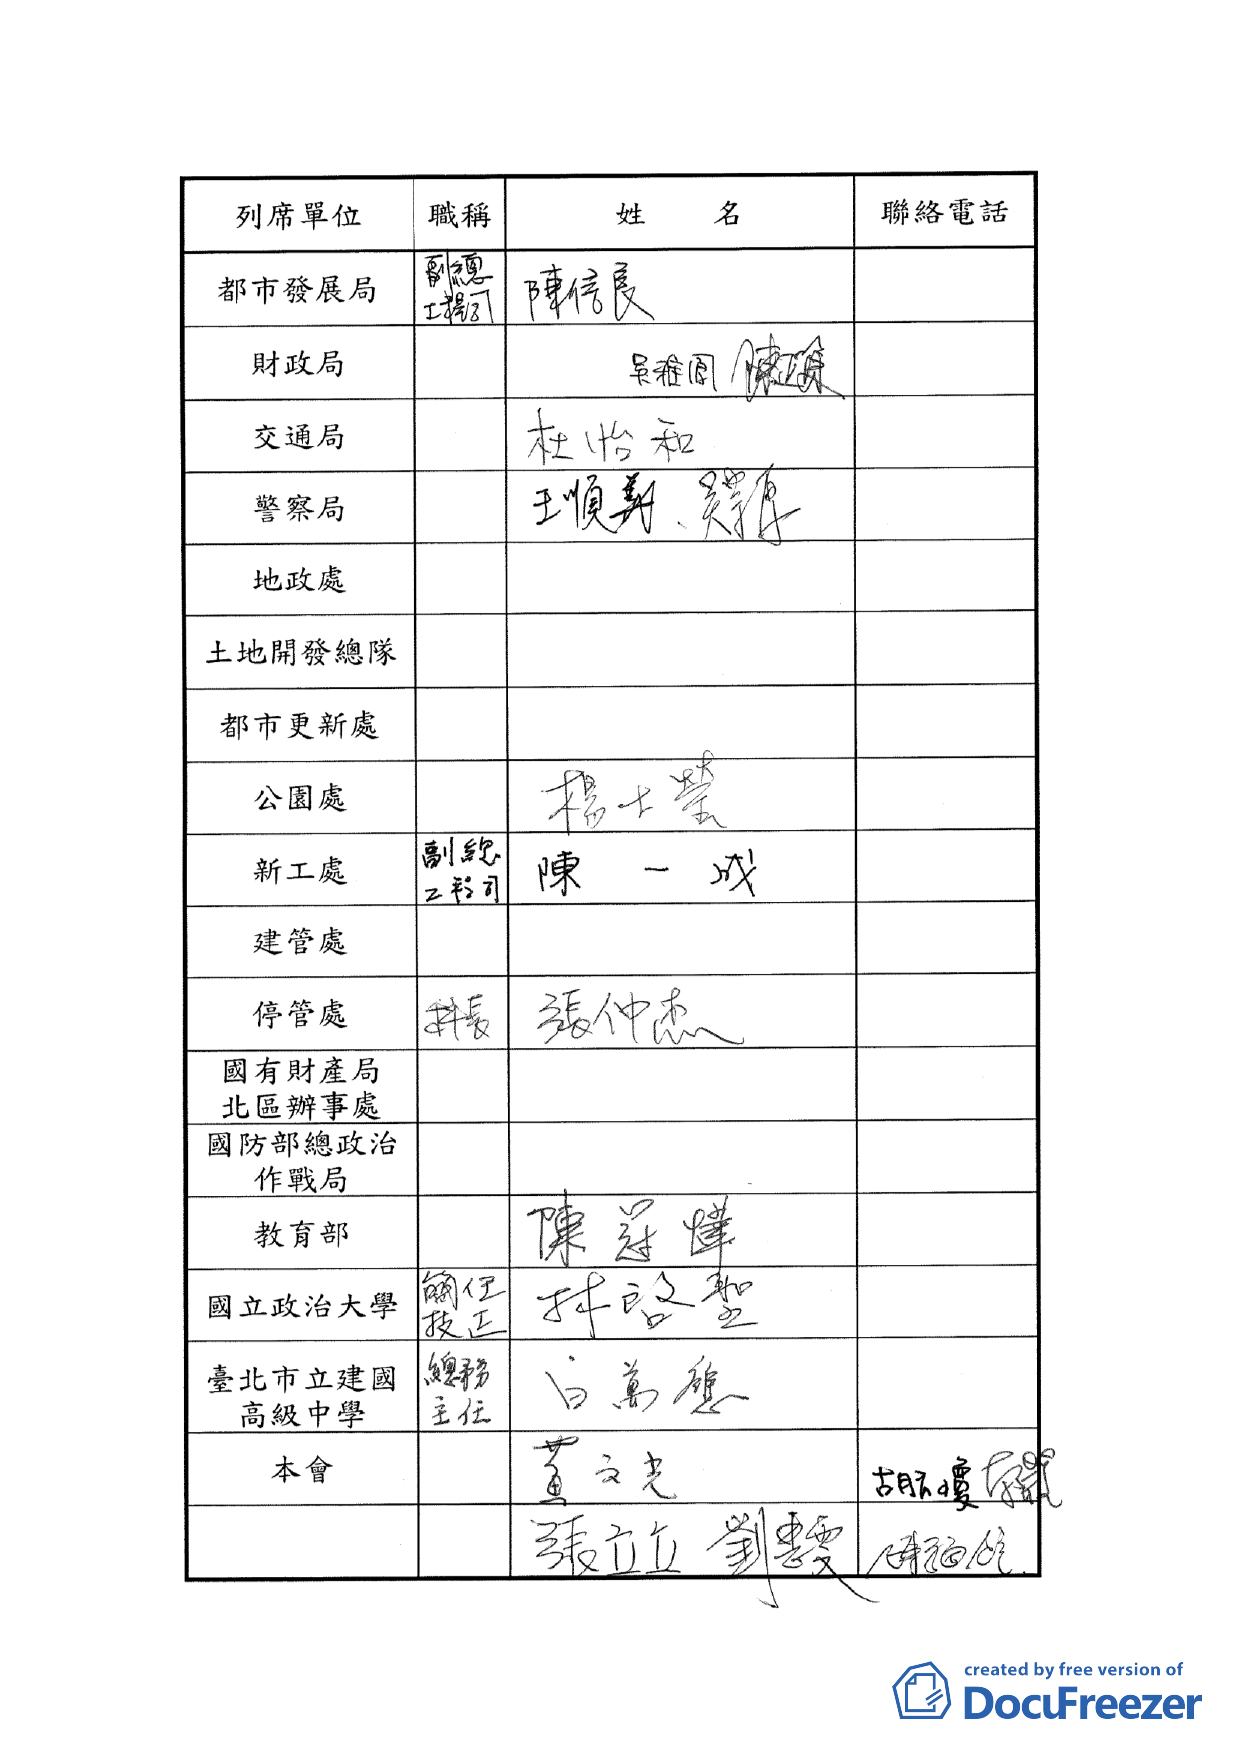 列席單位 職稱 姓 名 聯絡電話
都市發展局 副總工程司 陳信良
財政局 吳雅圓
交通局 杜怡和
警察局 王順
地政處
土地開發總隊
都市更新處
公園處 楊士瑩
新工處 副總工程司 陳一成
建管處
停管處 科長 張仲杰
國有財產局
北區辦事處
國防部總政治
作戰局
教育部 陳冠燁
國立政治大學 簡任技正 林啓聖
臺北市立建國 總務
高級中學 主任 白萬應
本會 黃文光
張立立 劉惠雯
created by free version of
DocuFreezer